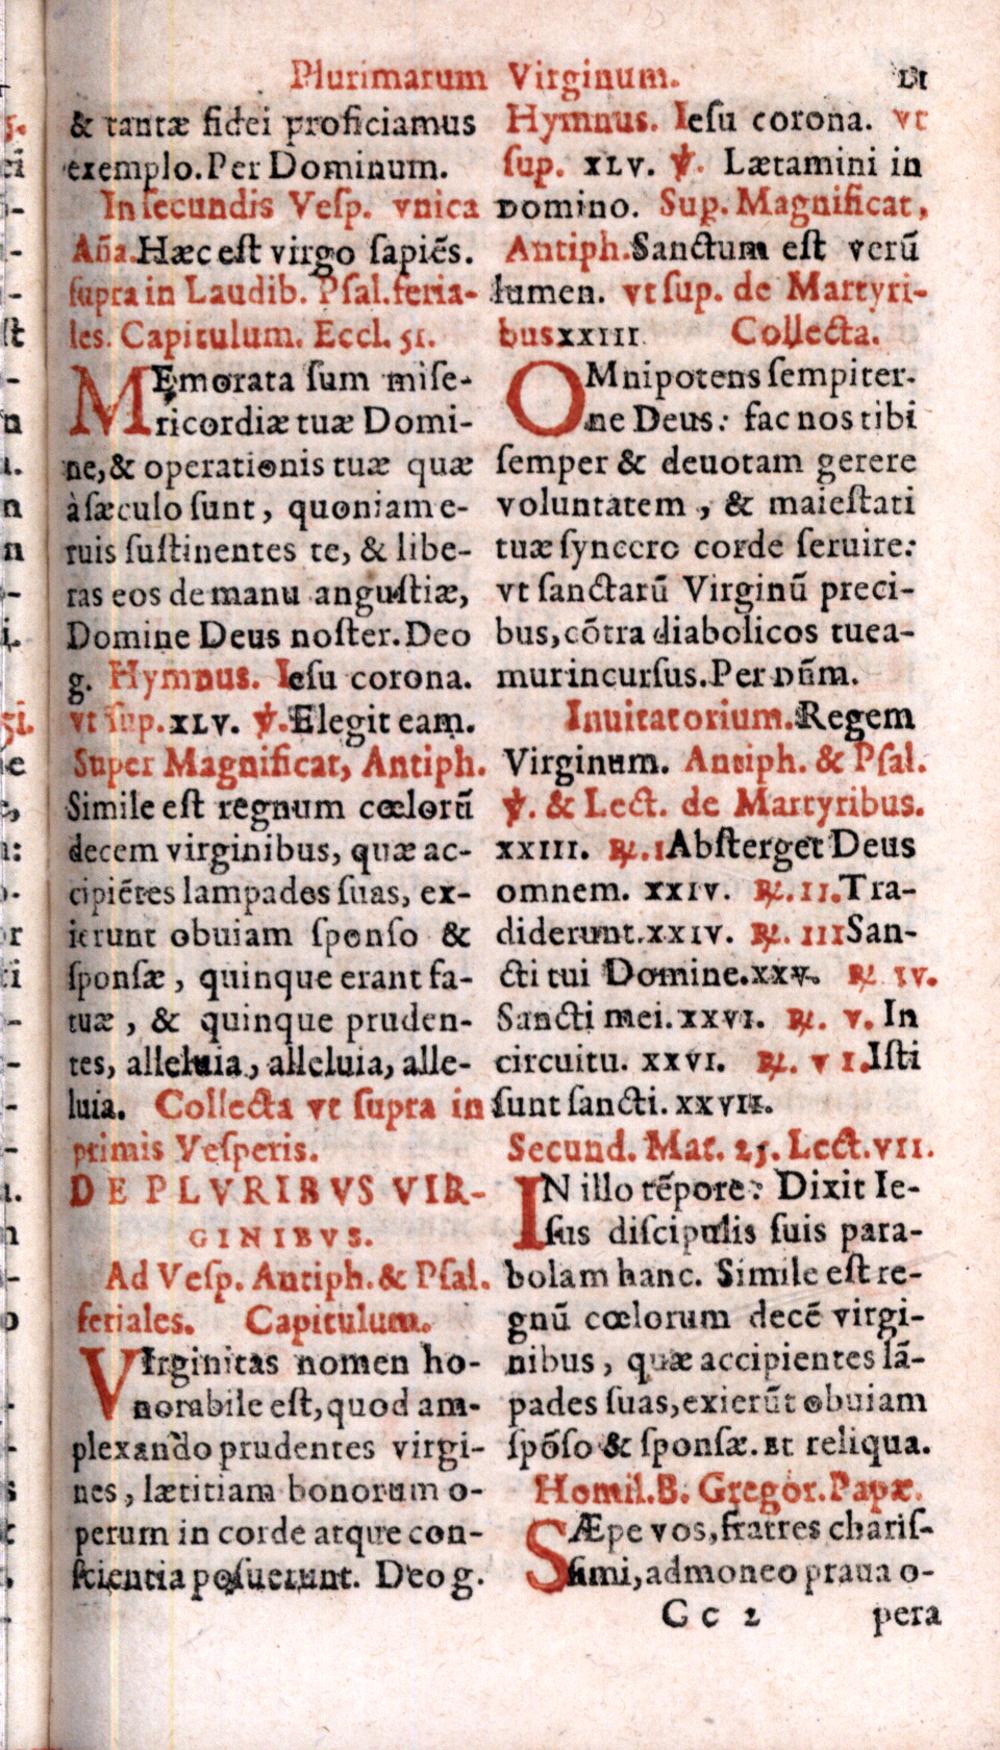 Plurimarum Virginum. LI
& tantæ fidei proficiamus
exemplo. Per Dominum.
In secundis Vesp. vnica
Aña. Hæc est virgo sapiẽs.
supra in Laudib. Psal. feria-
les. Capitulum. Eccl. 51.
MEmorata sum mise-
ricordiæ tuæ Domi-
ne, & operationis tuæ quæ
à sæculo sunt, quoniam e-
ruis sustinentes te, & libe-
ras eos de manu angustiæ,
Domine Deus noster. Deo
g. Hymnus. Iesu corona.
vt sup. XLV. ℣. Elegit eam.
Super Magnificat, Antiph.
Simile est regnum cœlorũ
decem virginibus, quæ ac-
cipiẽtes lampades suas, ex-
ierunt obuiam sponso &
sponsæ, quinque erant fa-
tuæ, & quinque pruden-
tes, alleluia, alleluia, alle-
luia. Collecta vt supra in
primis Vesperis.
DE PLVRIBVS VIR-
GINIBVS.
Ad Vesp. Antiph. & Psal.
feriales. Capitulum.
VIrginitas nomen ho-
norabile est, quod am-
plexando prudentes virgi-
nes, lætitiam bonorum o-
perum in corde atque con-
scientia posuerunt. Deo g.
Hymnus. Iesu corona. vt
sup. XLV. ℣. Lætamini in
Domino. Sup. Magnificat,
Antiph. Sanctum est verũ
lumen. vt sup. de Martyri-
bus XXIII. Collecta.
OMnipotens sempiter-
ne Deus: fac nos tibi
semper & deuotam gerere
voluntatem, & maiestati
tuæ syncero corde seruire:
vt sanctarũ Virginũ preci-
bus, cõtra diabolicos tuea-
mur incursus. Per Dñm.
Inuitatorium. Regem
Virginum. Antiph. & Psal.
℣. & Lect. de Martyribus.
XXIII. ℟. I Absterget Deus
omnem. XXIV. ℟. II. Tra-
diderunt. XXIV. ℟. III San-
cti tui Domine. XXV. ℟ IV.
Sancti mei. XXVI. ℟. V. In
circuitu. XXVI. ℟. VI. Isti
sunt sancti. XXVII.
Secund. Mat. 25. Lect. VII.
IN illo tẽpore: Dixit Ie-
sus discipulis suis para-
bolam hanc. Simile est re-
gnũ cœlorum decẽ virgi-
nibus, quæ accipientes lã-
pades suas, exierũt obuiam
spõso & sponsæ. Et reliqua.
Homil. B. Gregor. Papæ.
SÆpe vos, fratres charis-
simi, admoneo praua o-
Cc 2 pera